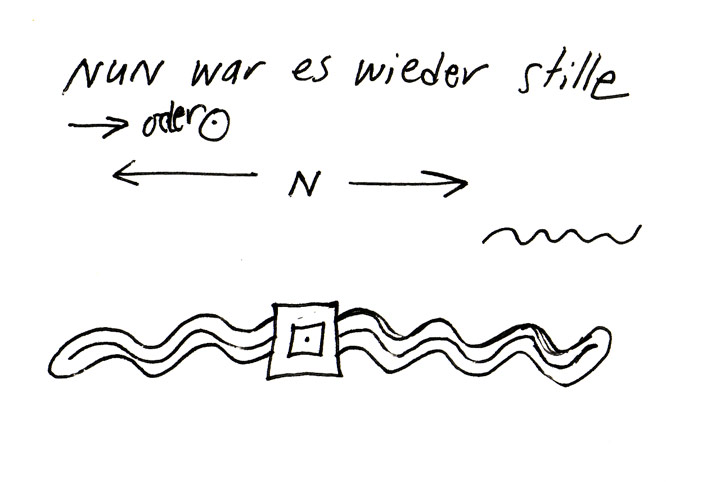 NUN war es wieder stille
→ oder ⊙
← N →